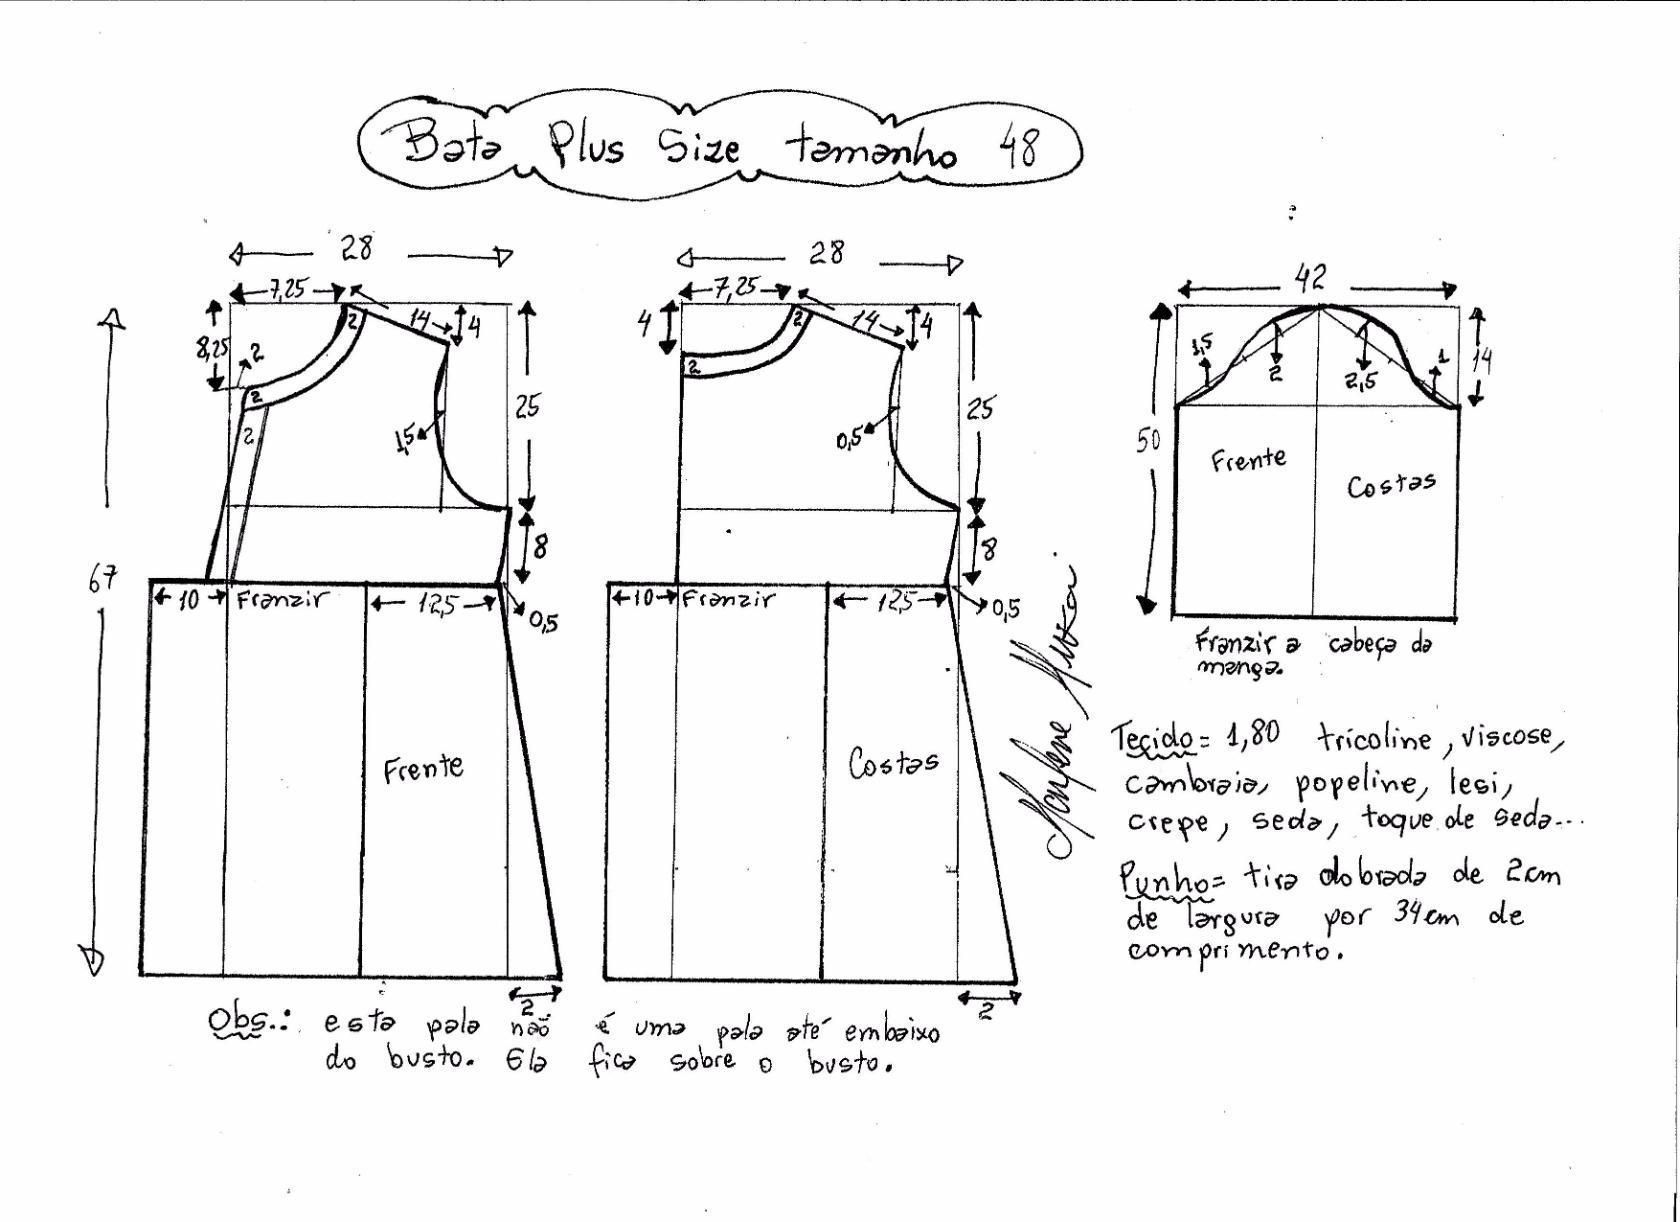 Bata Plus Size tamanho 48
28
7,25
14
4
8,25
2
2
2
2
1,5
25
8
67
10
Franzir
12,5
0,5
Frente
2
28
7,25
4
2
14
4
2
0,5
25
8
10
Franzir
12,5
0,5
Costas
2
42
1,5
2
2,5
1
14
50
Frente
Costas
Franzir a cabeça da
manga.
Tecido= 1,80 tricoline, viscose,
cambraia, popeline, lesi,
crepe, seda, toque de seda...
Punho= tira dobrada de 2cm
de largura por 34cm de
comprimento.
Obs.: esta pala não é uma pala até embaixo
do busto. Ela fica sobre o busto.